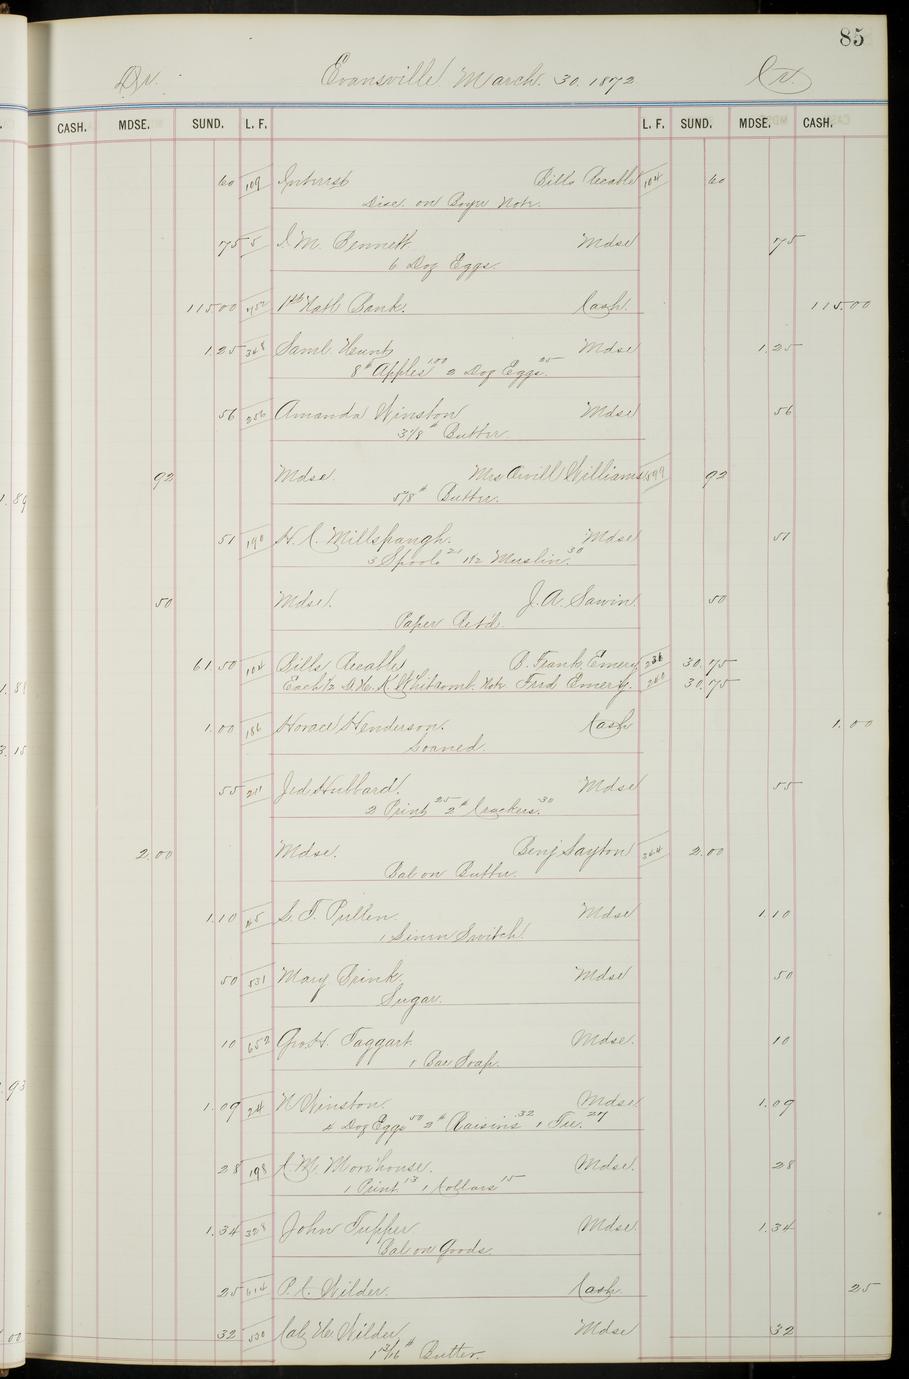 85
Dr. Evansville March. 30. 1872 Cr.
CASH. MDSE. SUND. L. F. L. F. SUND. MDSE. CASH.
60 109 Interest Bills Recable 104 60
Disc. on Note.
75 5 I. M. Bennett Mdse 75
6 Doz Eggs.
115.00 1st Natl Bank. Cash. 115.00
1.25 368 Saml Hunt Mdse 1.25
8 # Apples 1.00 2 Doz Eggs. 25
56 256 Amanda Winston Mdse 56
3 1/8 # Butter.
92 Mdse. Mrs Orvill Williams 92
5 1/8 # Butter.
51 190 H. C. Millspaugh. Mdse 51
3 Spools 21 1 1/2 Muslin. 30
50 Mdse. J. A. Sawin 50
Paper Retd.
61.50 104 Bills Recable B. Frank Emery 236 30.75
Each 1/2 Whitcomb. Note Fred Emery. 240 30.75
1.00 186 Horace Henderson. Cash 1.00
Loaned.
55 211 Jed Hubbard. Mdse 55
2 Print 25 2 # Crackers. 30
2.00 Mdse. Benj Layton 264 2.00
Bal on Butter.
1.10 45 L. T. Pullen. Mdse 1.10
1 Linen Switch.
50 531 Mary Brink. Mdse 50
Sugar.
10 652 Geo. H. Taggart. Mdse. 10
1 Bar Soap.
1.09 24 N Winston. Mdse 1.09
4 Doz Eggs 50 2 # Raisins 32 1 Tie. 27
28 198 C. M. Morehouse. Mdse. 28
1 Print 13 1 Collars 15
1.34 328 John Tupper Mdse 1.34
Bal on Goods.
25 614 P. C. Wilder. Cash 25
32 530 Wilder Mdse 32
1 13/16 # Butter.